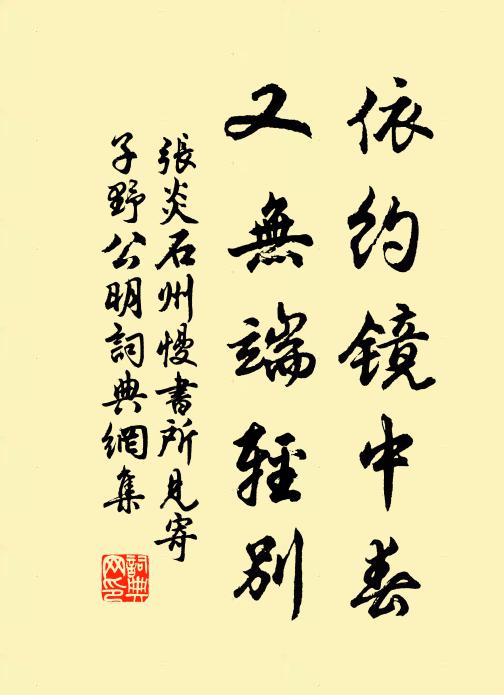 依约镜中春
又無端輕别
張炎石州慢書所見寄
子野公明詞典網集
詞典
网印